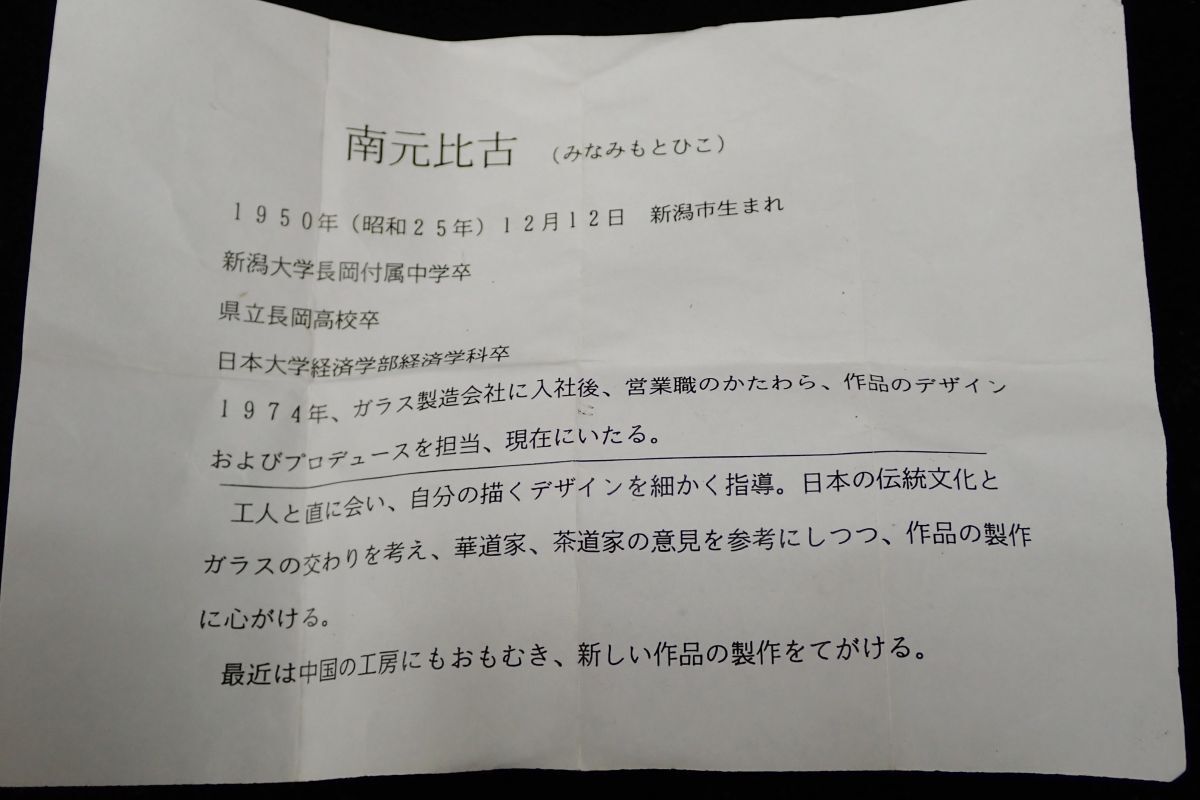 南元比古 (みなみもとひこ)
1950年(昭和25年)12月12日 新潟市生まれ
新潟大学長岡付属中学卒
県立長岡高校卒
日本大学経済学部経済学科卒
1974年、ガラス製造会社に入社後、営業職のかたわら、作品のデザイン
およびプロデュースを担当、現在にいたる。
工人と直に会い、自分の描くデザインを細かく指導。日本の伝統文化と
ガラスの交わりを考え、華道家、茶道家の意見を参考にしつつ、作品の製作
に心がける。
最近は中国の工房にもおもむき、新しい作品の製作をてがける。